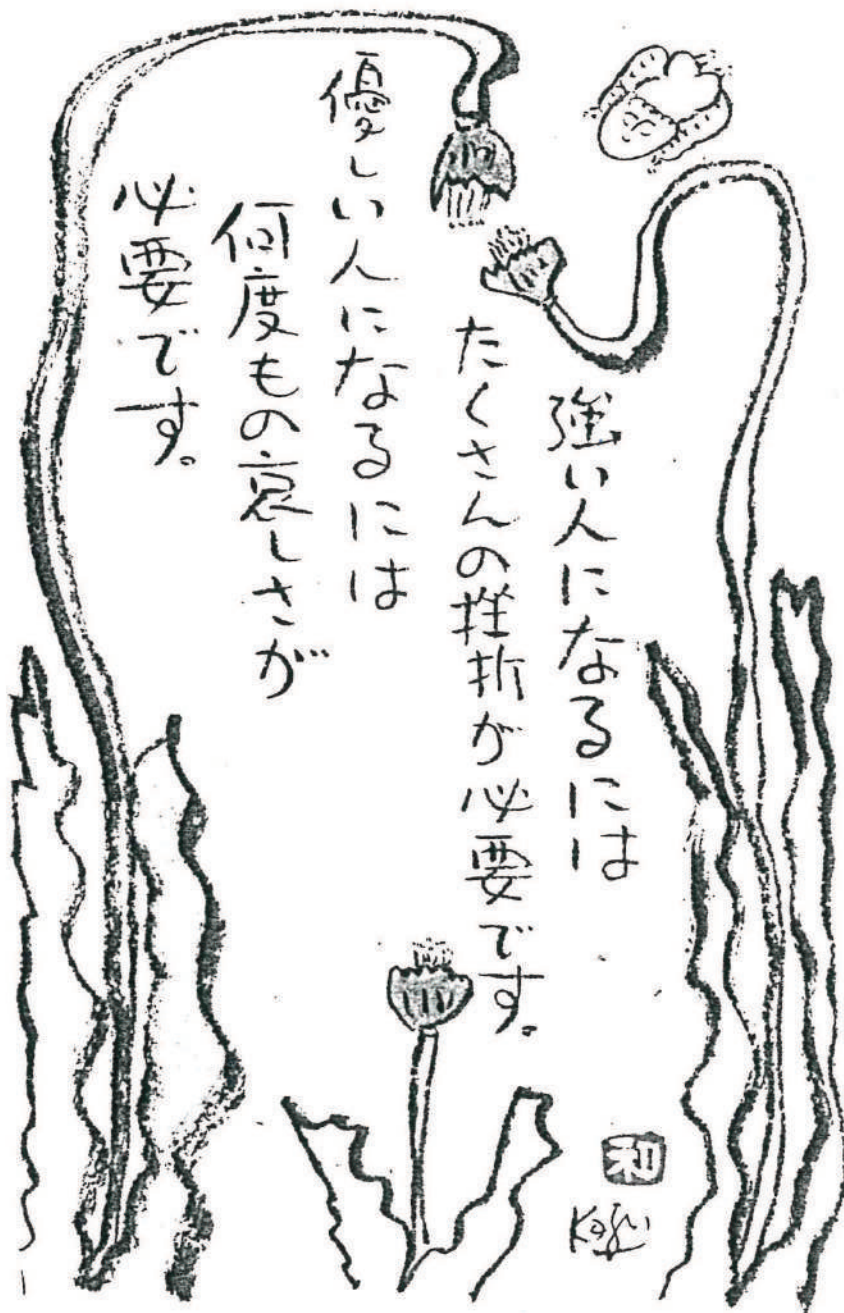 強い人になるには
たくさんの挫折が必要です。
優しい人になるには
何度もの哀しさが
必要です。
和